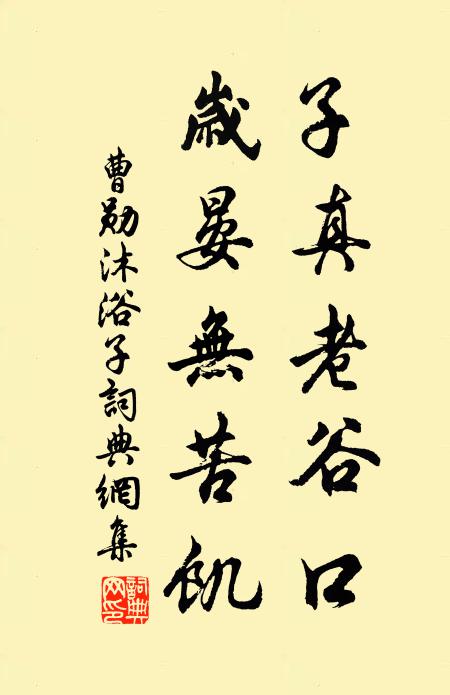 子真老谷口
歲晏無苦飢
曹勛沐浴子詞典網集
詞典網印